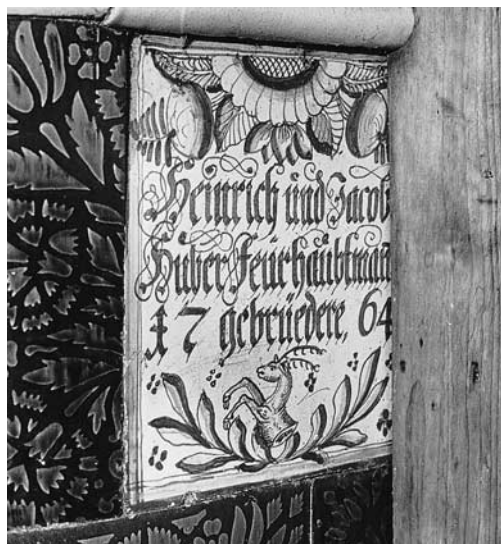 Heinrich und Jacob
Huber Feürhaubtman
17 gebrüedere, 64